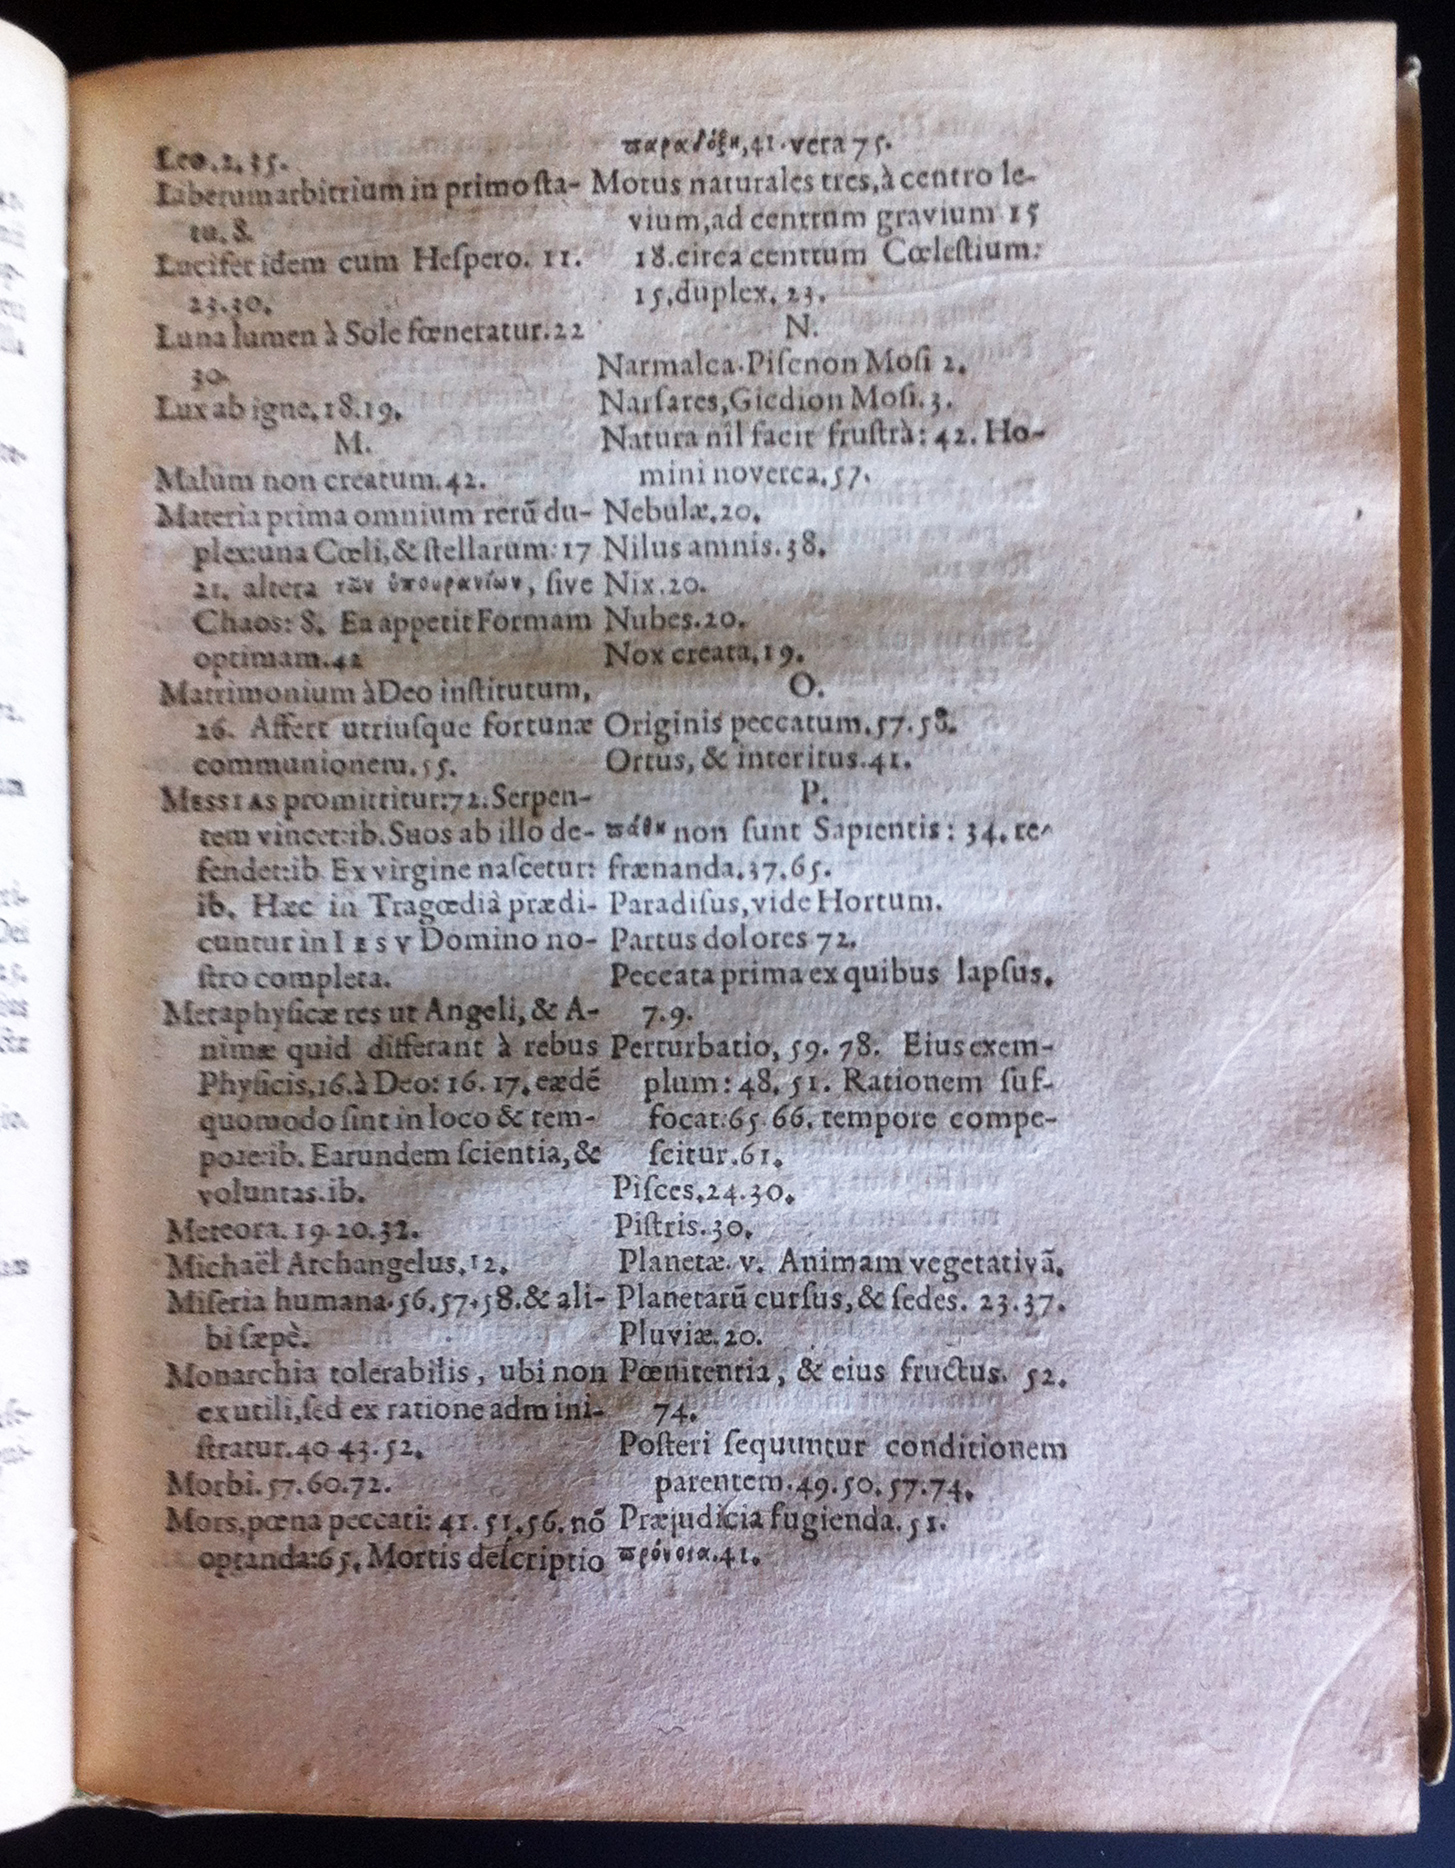 Leo.2.35.
Liberum arbitrium in primo ſta-
tu.8.
Lucifer idem cum Heſpero. 11.
23.30.
Luna lumen à Sole fœneratur.22
30.
Lux ab igne.18.19.
M.
Malum non creatum.42.
Materia prima omnium rerũ du-
plex:una Cœli,& ſtellarum: 17
21. altera τῶν ὑπουρανίων, ſive
Chaos: 8. Ea appetit Formam
optimam.42
Matrimonium à Deo inſtitutum,
26. Affert utriuſque fortunæ
communionem.55.
MESSIAS promittitur:72.Serpen-
tem vincet:ib.Suos ab illo de-
fendet:ib Ex virgine naſcetur:
ib. Hæc in Tragœdiâ prædi-
cuntur in IESV Domino no-
ſtro completa.
Metaphyſicæ res ut Angeli, & A-
nimæ quid differant à rebus
Phyſicis,16.à Deo: 16. 17. eædẽ
quomodo ſint in loco & tem-
pore:ib. Earundem ſcientia, &
voluntas.ib.
Meteora. 19.20.32.
Michaël Archangelus.12.
Miſeria humana.56.57.58.& ali-
bi ſæpè.
Monarchia tolerabilis, ubi non
ex utili,ſed ex ratione admini-
ſtratur.40 43.52.
Morbi.57.60.72.
Mors,pœna peccati: 41.51.56.nõ
optanda:65. Mortis deſcriptio
παραδόξη,41.vera 75.
Motus naturales tres,à centro le-
vium,ad centrum gravium 15
18.circa centrum Cœleſtium:
15.duplex. 23.
N.
Narmalca.Piſcnon Moſi 2.
Narſares,Giedion Moſi.3.
Natura nil facit fruſtrà: 42. Ho-
mini noverca.57.
Nebulæ.20.
Nilus amnis.38.
Nix.20.
Nubes.20.
Nox creata,19.
O.
Originis peccatum.57.58.
Ortus, & interitus.41.
P.
πάθη non ſunt Sapientis: 34. re-
frænanda.37.65.
Paradiſus,vide Hortum.
Partus dolores 72.
Peccata prima ex quibus lapſus.
7.9.
Perturbatio, 59. 78. Eius exem-
plum: 48. 51. Rationem ſuf-
focat:65.66. tempore compe-
ſcitur.61.
Piſces.24.30.
Piſtris.30.
Planetæ. v. Animam vegetativã.
Planetarũ curſus, & ſedes. 23.37.
Pluviæ.20.
Pœnitentia, & eius fructus. 52.
74.
Poſteri ſequuntur conditionem
parentem.49.50.57.74.
Præjudicia fugienda.51.
πρόνοια.41.